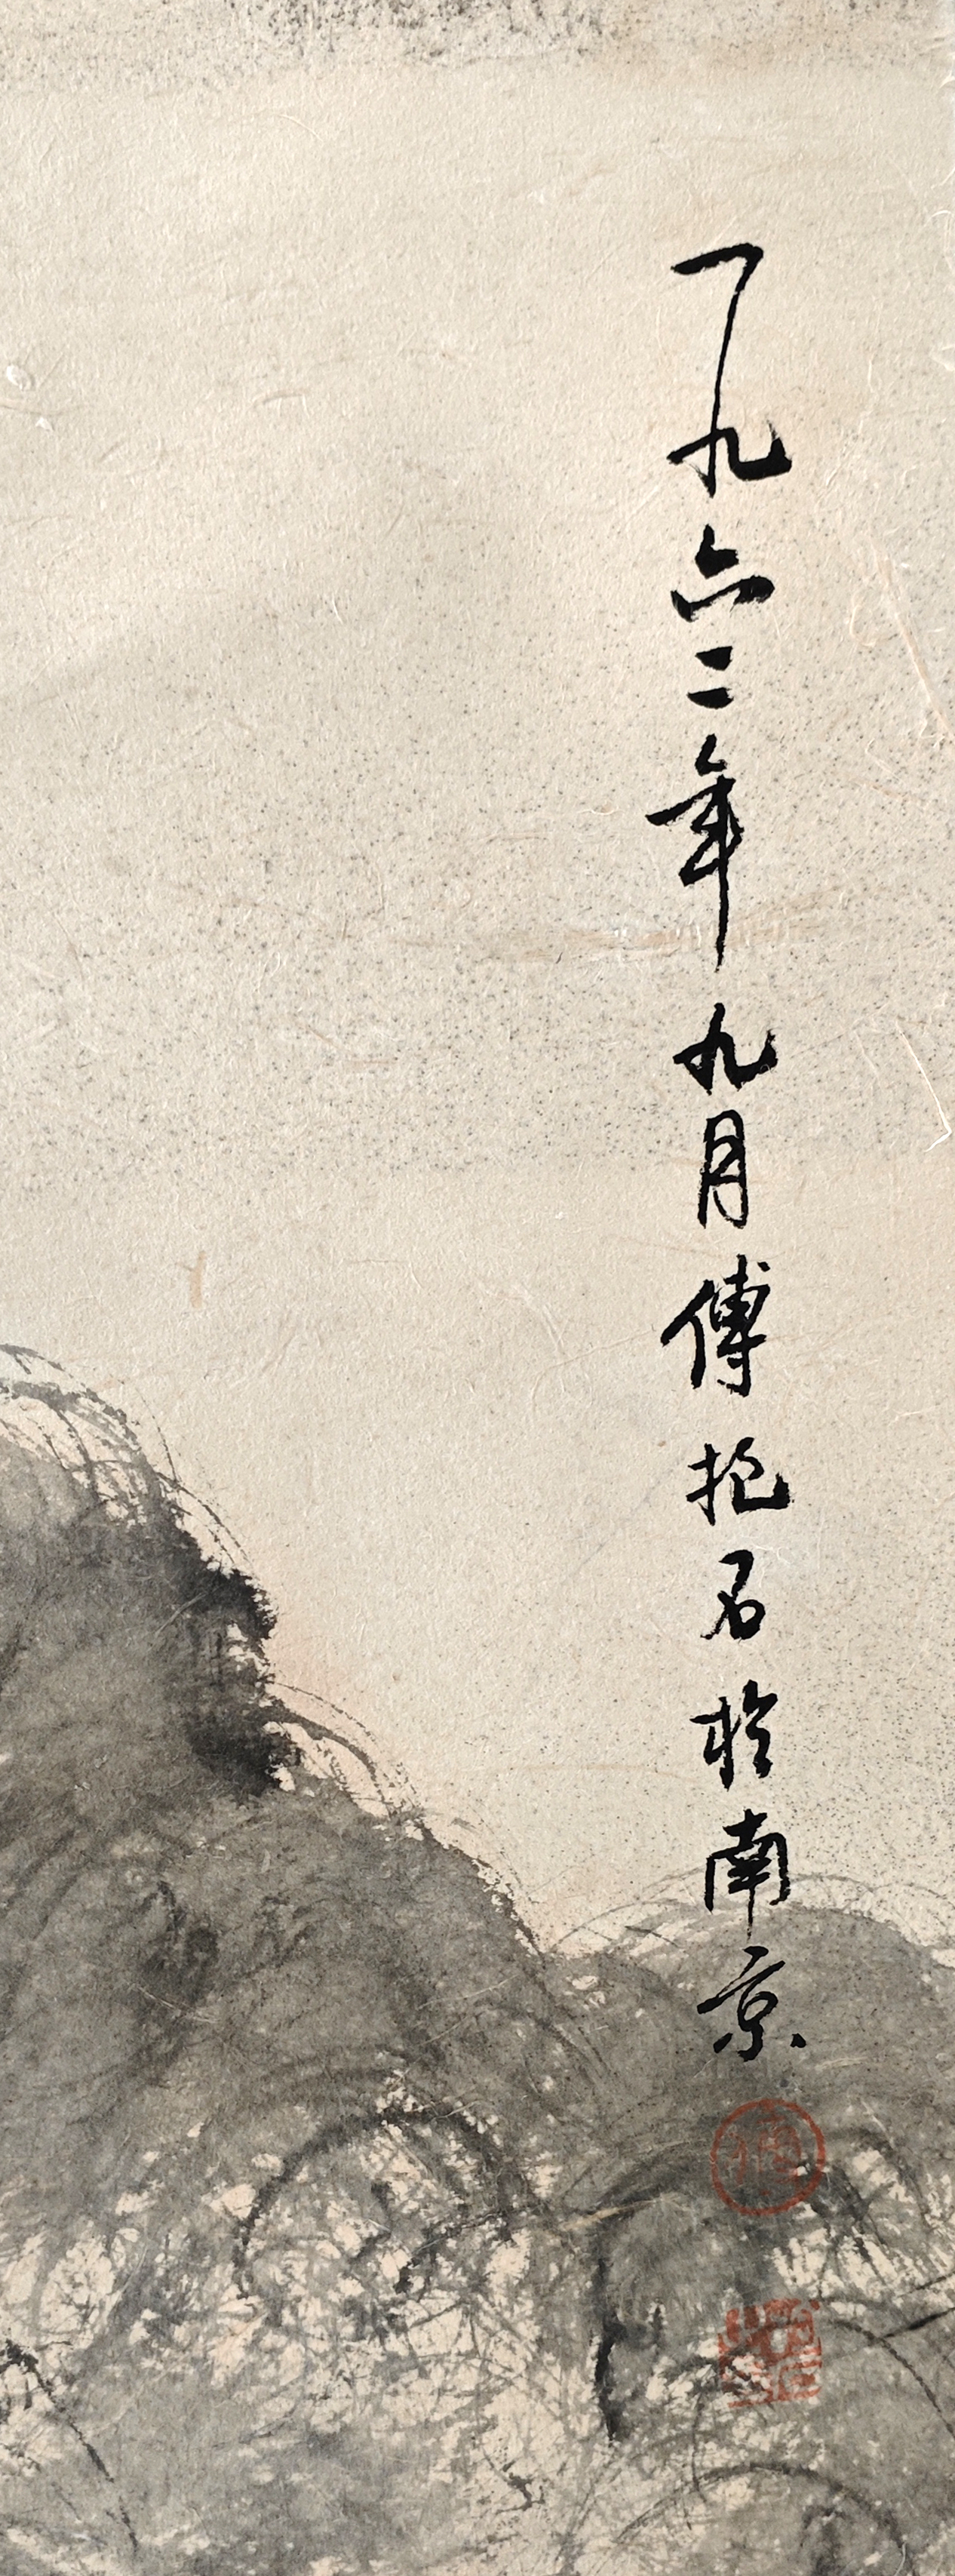 一九六二年九月傅抱石於南京
傅